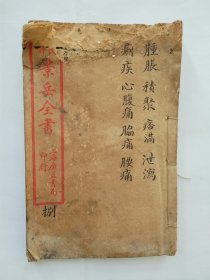 腫脹 積聚 痞滿 泄瀉
痢疾 心腹痛 脇痛 腰痛
景岳全書
印行
捌